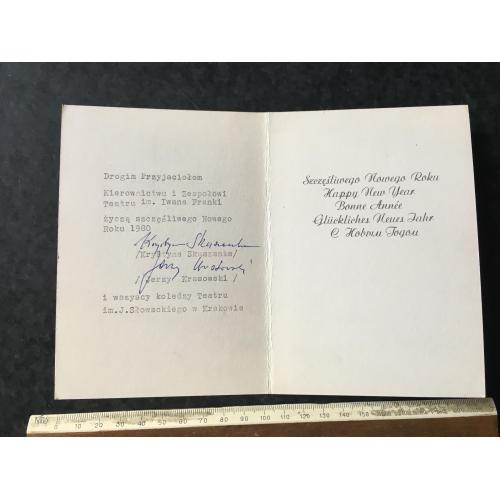 Drogim Przyjaciołom
Kierownictwu i Zespołowi
Teatru im. Iwana Franki
życzą szczęśliwego Nowego
Roku 1980
Krystyna Skuszanka
/Krystyna Skuszanka/
Jerzy Krasowski
/Jerzy Krasowski/
i wszyscy koledzy Teatru
im.J.Słowackiego w Krakowie
Szczęśliwego Nowego Roku
Happy New Year
Bonne Année
Glückliches Neues Jahr
С Новым Годом
0 10 20 30 40 50 60 70 80 90 100 110 120 130 140 150 160 170 180 190 200